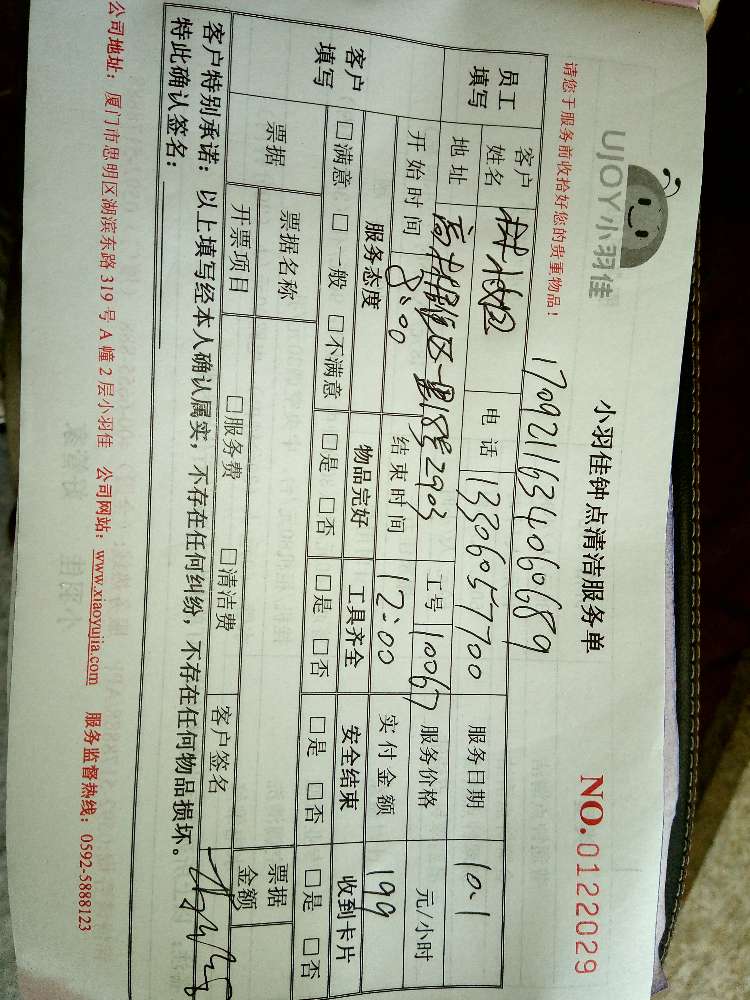 UJOY小羽佳
小羽佳钟点清洁服务单
NO.0122029
请您于服务前收拾好您的贵重物品!
1709211634060689
员工填写 客户姓名 林 电话 13306057700 服务日期 10.1
地址 高林居住区一里18号2903 工号 10067 服务价格 元/小时
开始时间 8:00 结束时间 12:00 实付金额 199
客户填写 服务态度 物品完好 工具齐全 安全结束 收到卡片
□满意 □一般 □不满意 □是 □否 □是 □否 □是 □否 □是 □否
票据 票据名称 票据金额
开票项目 □服务费 □清洁费 客户签名
客户特别承诺:以上填写经本人确认属实,不存在任何纠纷,不存在任何物品损坏。
特此确认签名:
公司地址:厦门市思明区湖滨东路319号A幢2层小羽佳 公司网站:www.xiaoyujia.com 服务监督热线:0592-5888123